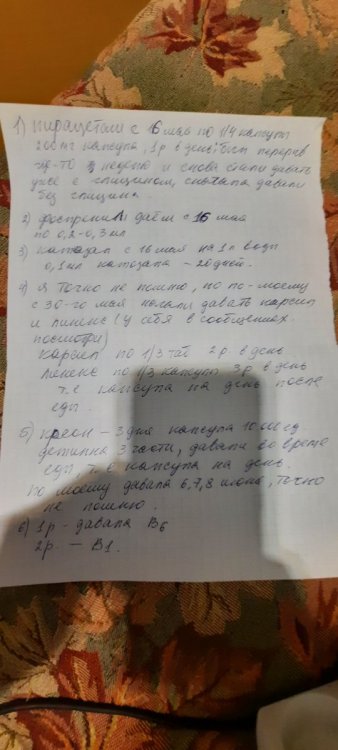 1) Пирацетам с 16 мая по 1/4 капсулы
200 мг капсула, 1 р в день, был перерыв
где-то неделю и снова стали давать
уже с глицином, сначала давали
без глицина.
2) даём с 16 мая
по 0,2-0,3 мл
3) катозал с 16 мая на 1 л воды
0,1 мл катозала - 20 дней.
4) я точно не помню, но по-моему
с 30-го мая начали давать карсил
и линекс (у себя в сообщениях
посмотри)
Карсил по 1/3 таб 2 р в день
Линекс по 1/3 капсулы 3 р в день
т.е капсула на день после
еды.
5) Креон - 3 дня капсула 10 000 ед
делила 3 части, давала во время
еды, т.е капсула на день.
По моему давала 6,7,8 июня, точно
не помню.
6) 1 р - давала B6
2 р. - B1.